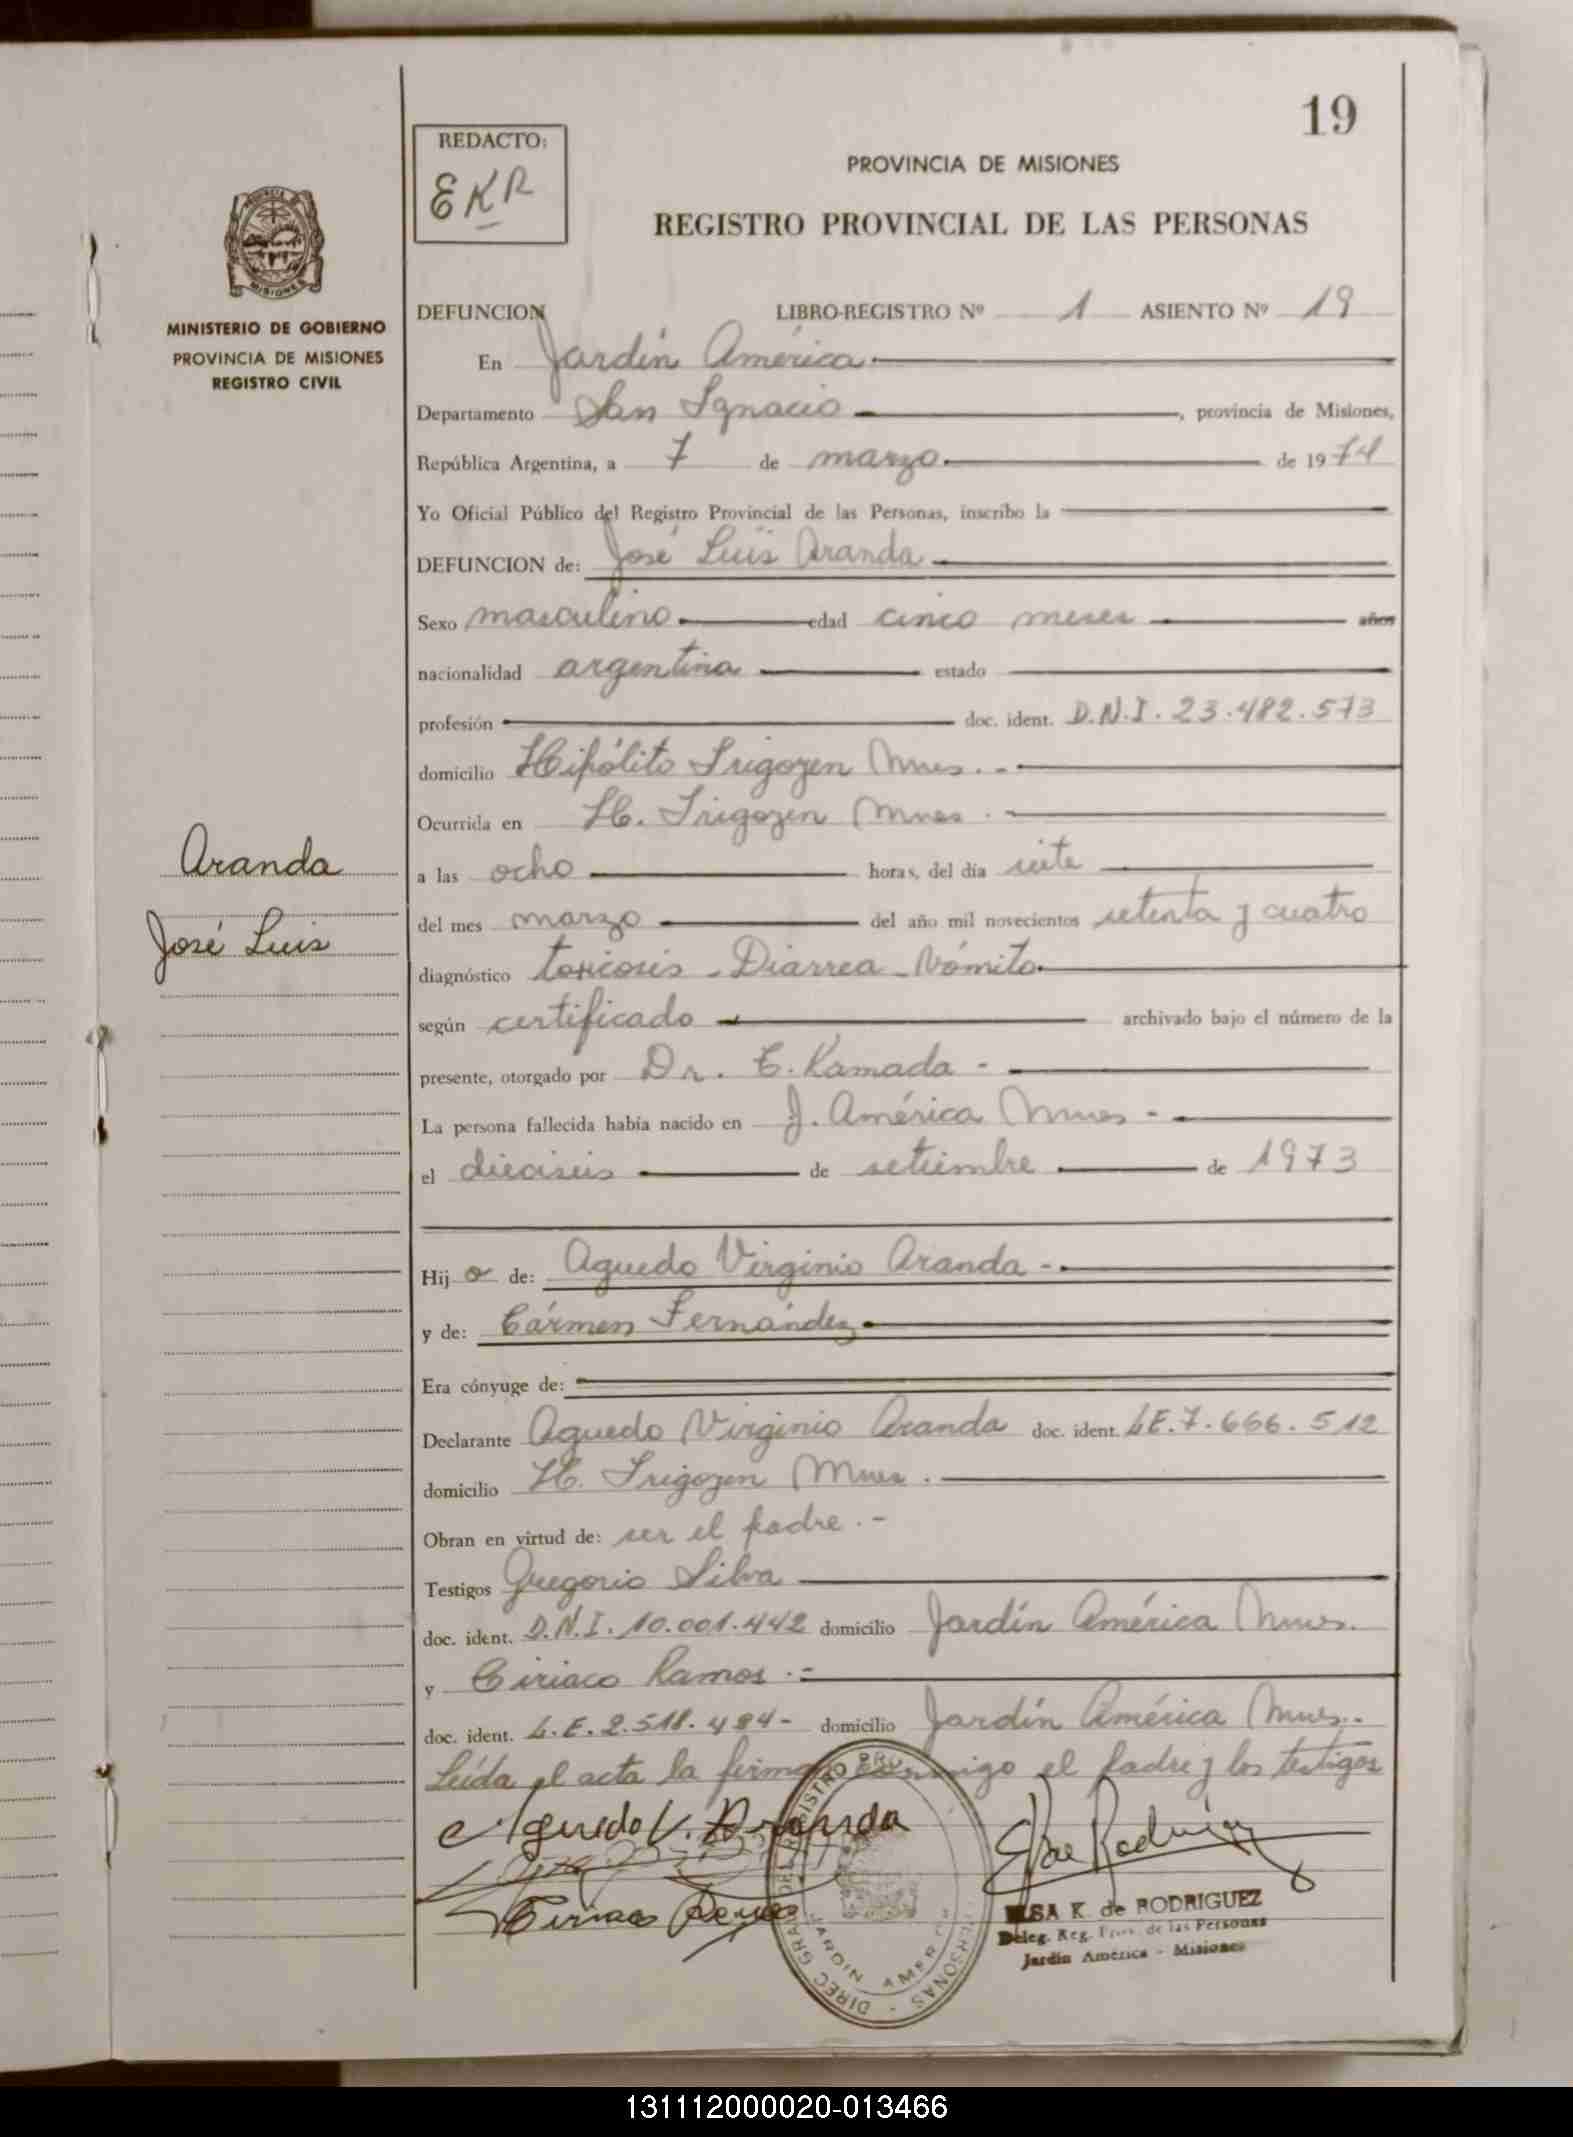 19
REDACTO:
EKR
PROVINCIA DE MISIONES
REGISTRO PROVINCIAL DE LAS PERSONAS
MINISTERIO DE GOBIERNO
PROVINCIA DE MISIONES
REGISTRO CIVIL
DEFUNCION LIBRO-REGISTRO Nº 1 ASIENTO Nº 19
En Jardín América
Departamento San Ignacio, provincia de Misiones,
República Argentina, a 7 de marzo de 1974
Yo Oficial Público del Registro Provincial de las Personas, inscribo la
DEFUNCION de: José Luis Aranda
Sexo masculino edad cinco meses años
nacionalidad argentina estado
profesión doc. ident. D.N.I. 23.482.573
domicilio Hipólito Irigoyen Mnes.-
Ocurrida en H. Irigoyen Mnes.
Aranda
José Luis
a las ocho horas, del día siete
del mes marzo del año mil novecientos setenta y cuatro
diagnóstico toxicosis - Diarrea - Vómito
según certificado archivado bajo el número de la
presente, otorgado por Dr. C. Kamada -
La persona fallecida había nacido en J. América Mnes -
el dieciseis de setiembre de 1973
Hijo de: Aguedo Virginio Aranda -
y de: Cármen Fernández
Era cónyuge de:
Declarante Aguedo Virginio Aranda doc. ident. L.E. 7.666.512
domicilio H. Irigoyen Mnes.
Obran en virtud de: ser el padre.-
Testigos Gregorio Silva
doc. ident. D.N.I. 10.001.442 domicilio Jardín América Mnes.
y Ciriaco Ramos.-
doc. ident. L.E. 2.518.484- domicilio Jardín América Mnes.-
Leída el acta la firman conmigo el padre y los testigos
Aguedo V. Aranda
Ciriaco Ramos
ELSA K. de RODRIGUEZ
Deleg. Reg. Prov. de las Personas
Jardín América - Misiones
131112000020-013466